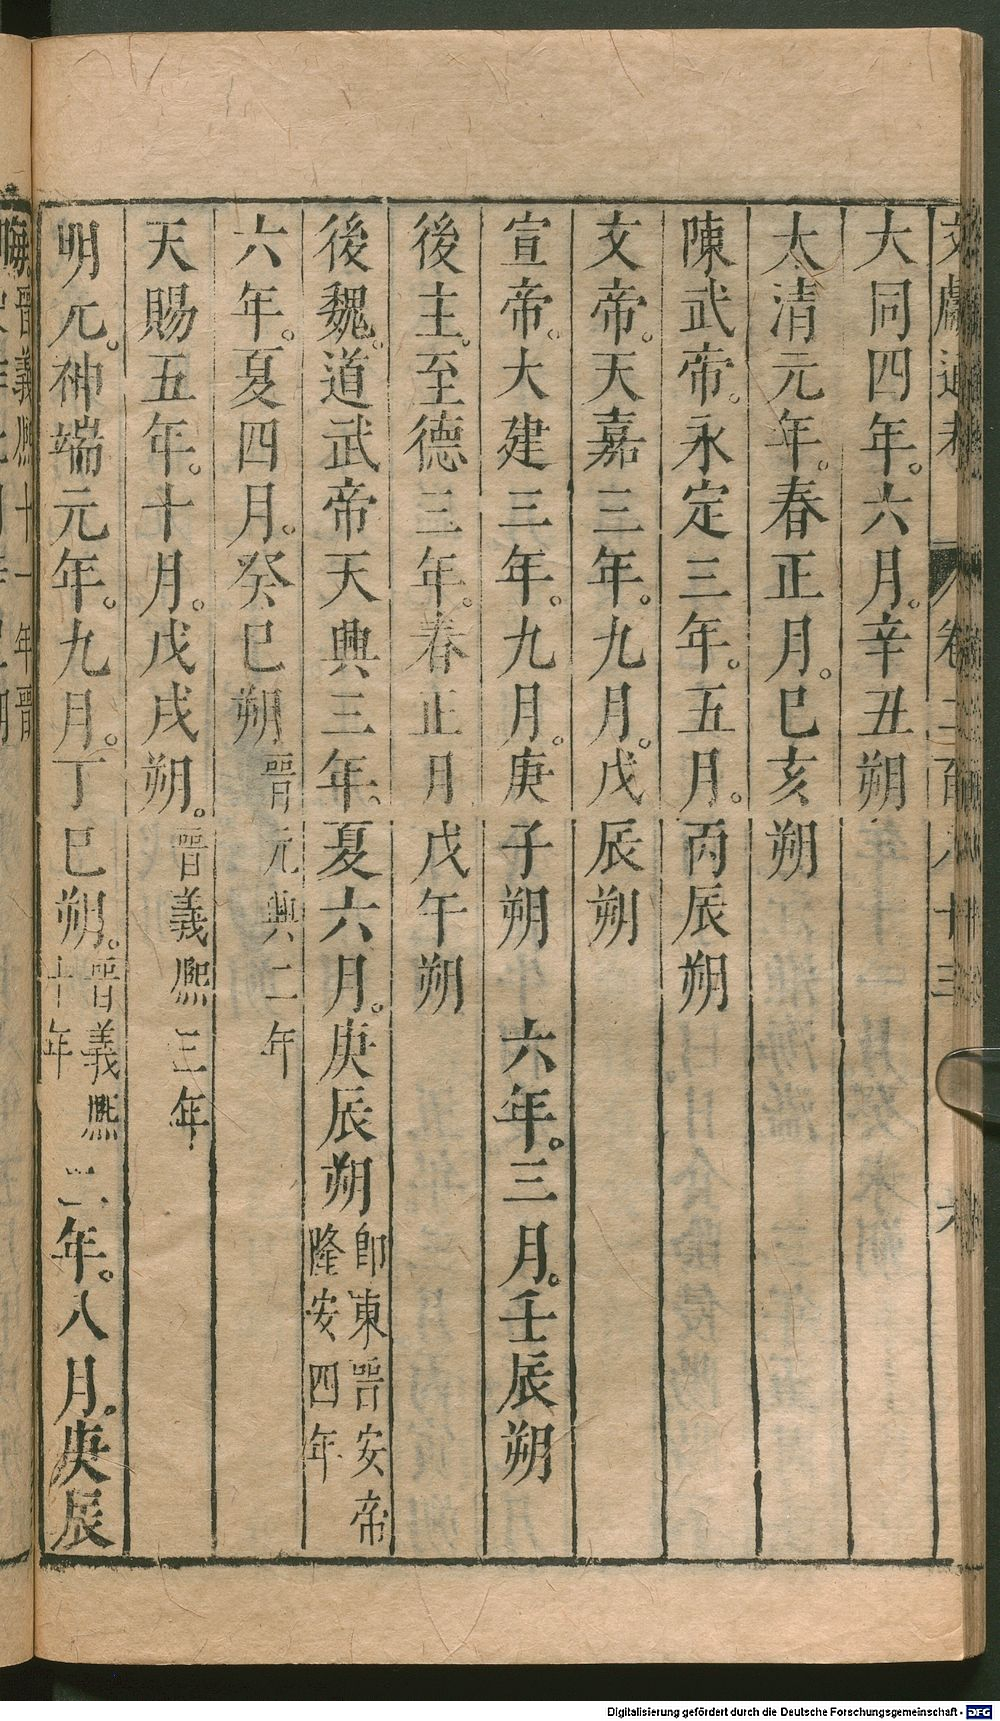 文獻通考 卷二百八十三 六
大同四年。六月。辛丑朔
太清元年。春正月。巳亥朔
陳武帝。永定三年。五月。丙辰朔
文帝。天嘉三年。九月。戊辰朔
宣帝。大建三年。九月。庚子朔 六年。三月。壬辰朔
後主。至德三年。春正月戊午朔
後魏。道武帝天興三年。夏六月。庚辰朔卽東晉安帝隆安四年
六年。夏四月。癸巳朔晉元興二年
天賜五年。十月。戊戌朔。晉義熙三年
明元。神端元年。九月。丁巳朔。晉義熙十年 二年。八月。庚辰
晦。晉義熙十一年晉
Digitalisierung gefördert durch die Deutsche Forschungsgemeinschaft - DFG